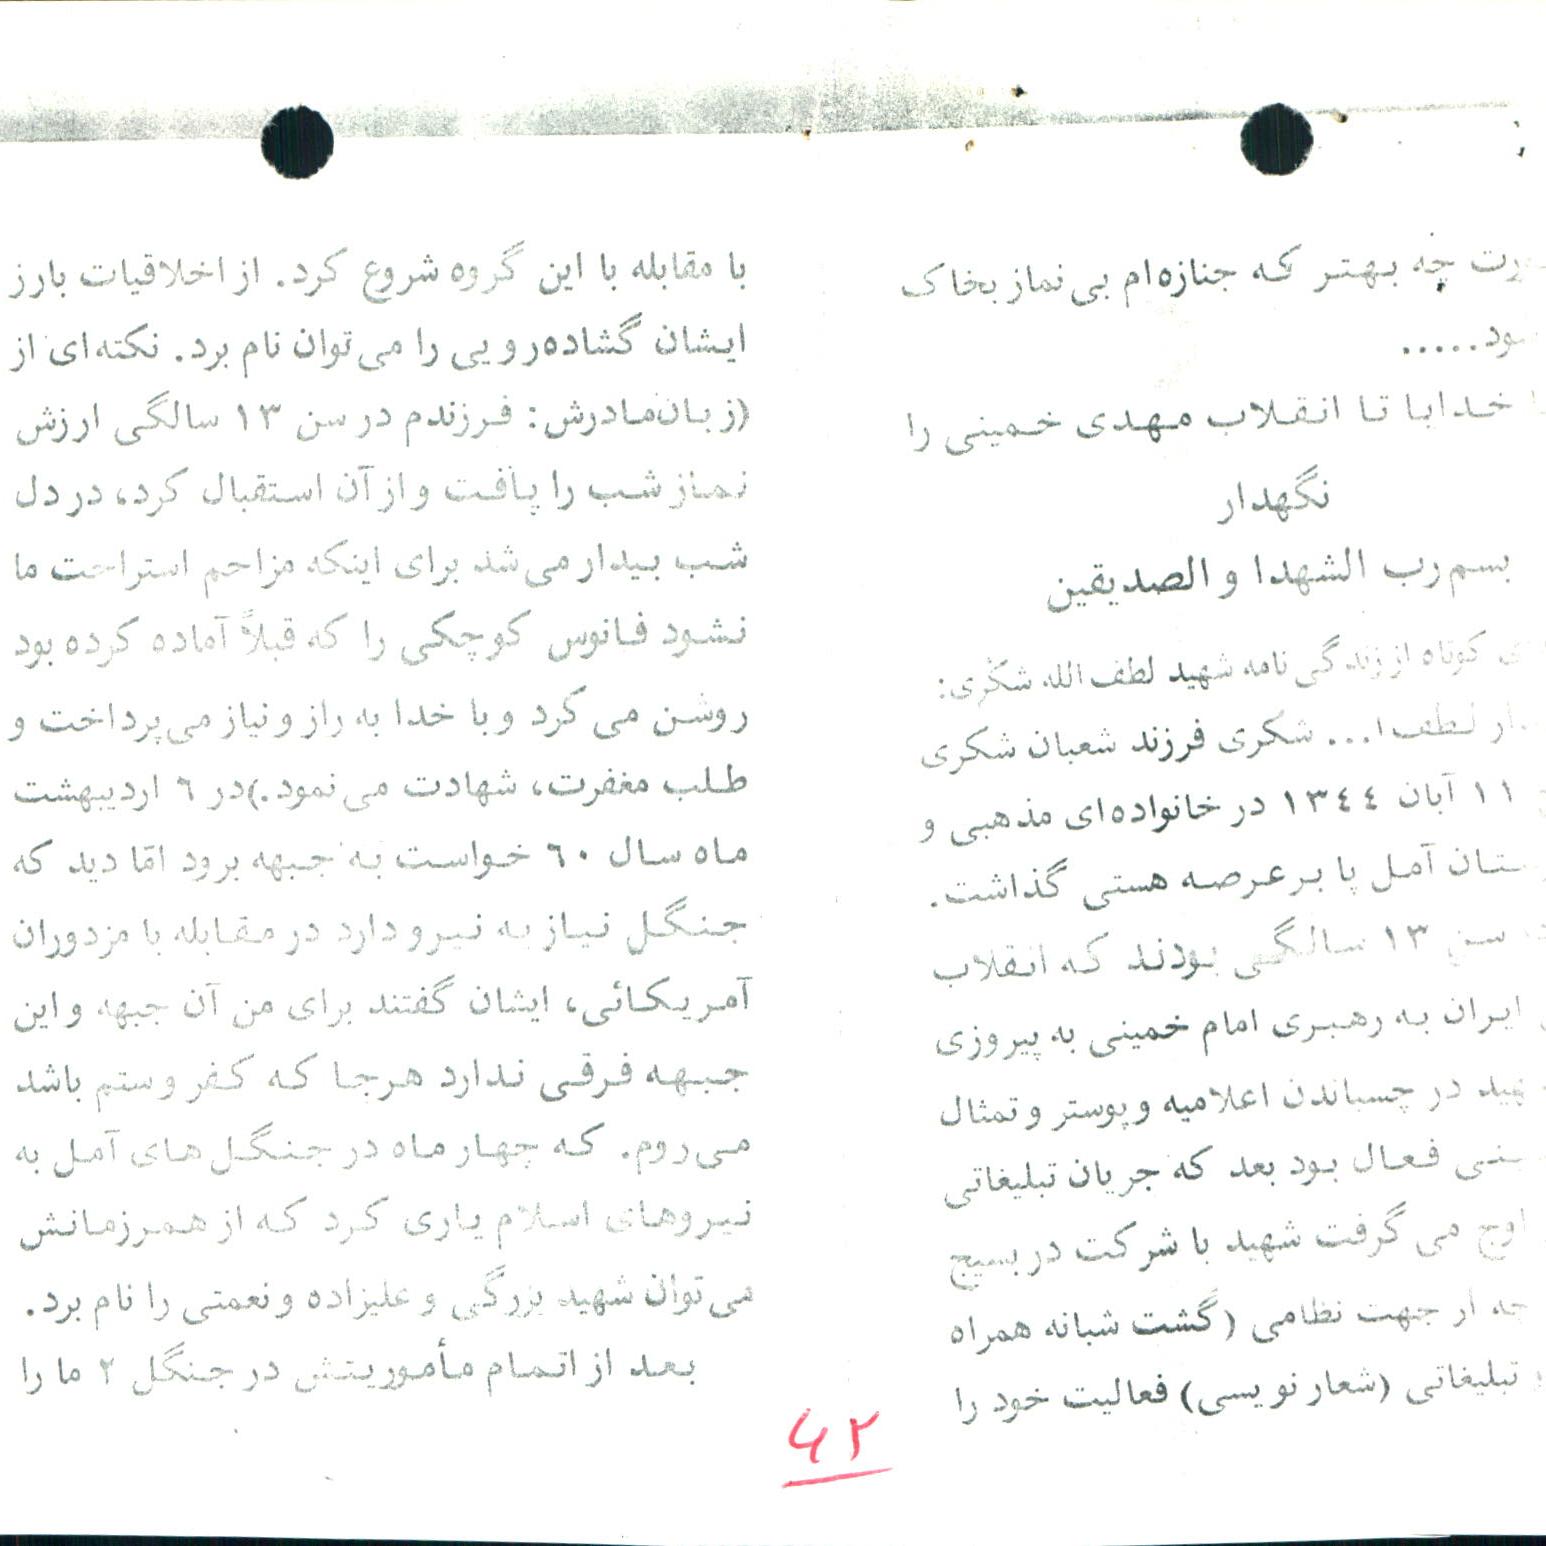 چه بهتر که جنازه‌ام بی‌نماز بخاک
.....
خدایا تا انقلاب مهدی خمینی را
نگهدار
بسم رب الشهدا و الصدیقین
کوتاه از زندگی نامه شهید لطف الله شکری:
لطف ا... شکری فرزند شعبان شکری
۱۱ آبان ۱۳٤٤ در خانواده‌ای مذهبی و
آمل پا بر عرصه هستی گذاشت.
سن ۱۳ سالگی بودند که انقلاب
ایران به رهبری امام خمینی به پیروزی
در چسباندن اعلامیه و پوستر و تمثال
فعال بود بعد که جریان تبلیغاتی
اوج می گرفت شهید با شرکت در بسیج
از جهت نظامی (گشت شبانه همراه
تبلیغاتی (شعار نویسی) فعالیت خود را
با مقابله با این گروه شروع کرد. از اخلاقیات بارز
ایشان گشاده‌رویی را می‌توان نام برد. نکته‌ای از
(زبان مادرش: فرزندم در سن ۱۳ سالگی ارزش
نماز شب را یافت و از آن استقبال کرد، در دل
شب بیدار می‌شد برای اینکه مزاحم استراحت ما
نشود فانوس کوچکی را که قبلاً آماده کرده بود
روشن می کرد و با خدا به راز و نیاز می‌پرداخت و
طلب مغفرت، شهادت می‌نمود.) در ٦ اردیبهشت
ماه سال ٦۰ خواست به جبهه برود امّا دید که
جنگل نیاز به نیرو دارد در مقابله با مزدوران
آمریکائی، ایشان گفتند برای من آن جبهه و این
جبهه فرقی ندارد هرجا که کفر و ستم باشد
می‌روم. که چهار ماه در جنگل‌های آمل به
نیروهای اسلام یاری کرد که از همرزمانش
می‌توان شهید بزرگی و علیزاده و نعمتی را نام برد.
بعد از اتمام مأموریتش در جنگل ۲ ما را
۴۲